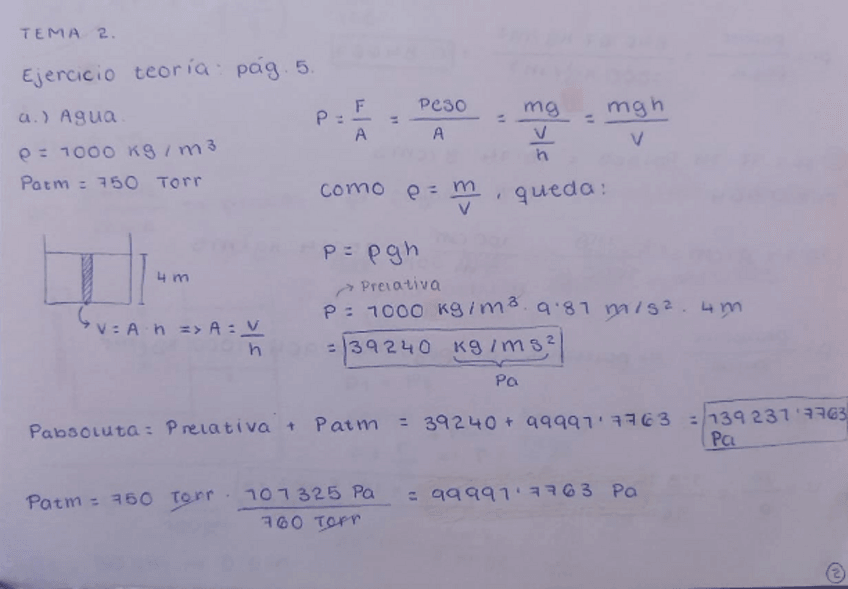 TEMA 2.
Ejercicio teoría: pág. 5.
a.) Agua.
ρ = 1000 kg/m³
Patm = 750 Torr
P = F/A = Peso/A = mg/(V/h) = mgh/V
como ρ = m/V, queda:
P = ρgh
4 m
V = A·h => A = V/h
→ Prelativa
P = 1000 kg/m³ · 9'81 m/s² · 4m
= 39240 kg/ms²
Pa
Pabsoluta = Prelativa + Patm = 39240 + 99991'7763 = 139231'7763 Pa
Patm = 750 Torr · 101325 Pa / 760 Torr = 99991'7763 Pa
2